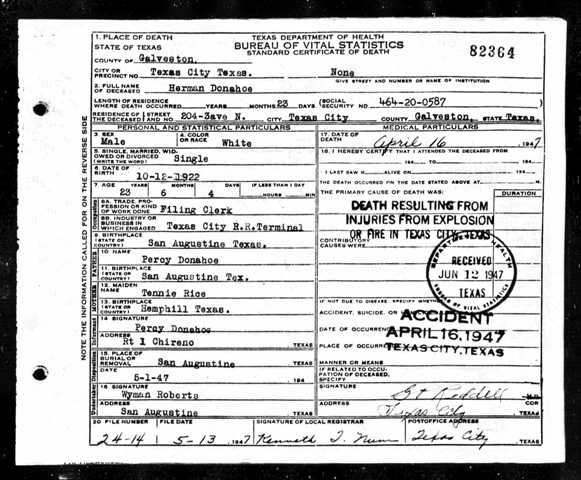 1. PLACE OF DEATH
STATE OF TEXAS
TEXAS DEPARTMENT OF HEALTH
BUREAU OF VITAL STATISTICS
STANDARD CERTIFICATE OF DEATH
82364
COUNTY OF Galveston.
CITY OR PRECINCT NO. Texas City Texas. None
GIVE STREET AND NUMBER OR NAME OF INSTITUTION
2. FULL NAME OF DECEASED Herman Donahoe
LENGTH OF RESIDENCE WHERE DEATH OCCURRED YEARS MONTHS 23 DAYS (SOCIAL SECURITY NO. 464-20-0587
RESIDENCE OF THE DECEASED STREET AND NO. 204-3ave N. CITY Texas City COUNTY Galveston, STATE Texas.
PERSONAL AND STATISTICAL PARTICULARS
3. SEX Male
4. COLOR OR RACE White
5. SINGLE, MARRIED, WIDOWED OR DIVORCED (WRITE THE WORD) Single
6. DATE OF BIRTH 10-12-1922
7. AGE 23 YEARS 6 MONTHS 4 DAYS IF LESS THAN 1 DAY HOURS MIN
8A. TRADE, PROFESSION OR KIND OF WORK DONE Filing Clerk
8B. INDUSTRY OR BUSINESS IN WHICH ENGAGED Texas City R.R.Terminal
9 BIRTHPLACE (STATE OR COUNTRY) San Augustine Texas.
10 NAME Percy Donahoe
11. BIRTHPLACE (STATE OR COUNTRY) San Augustine Tex.
12. MAIDEN NAME Tennie Rice
13. BIRTHPLACE (STATE OR COUNTRY) Hemphill Texas.
14 SIGNATURE Percy Donahoe
ADDRESS Rt 1 Chireno TEXAS
15. PLACE OF BURIAL OR REMOVAL San Augustine TEXAS
DATE 5-1-47 194
16 SIGNATURE Wyman Roberts
ADDRESS San Augustine TEXAS
MEDICAL PARTICULARS
17. DATE OF DEATH April 16 1947
18. I HEREBY CERTIFY THAT I ATTENDED THE DECEASED FROM
194 TO 194
I LAST SAW H ALIVE ON 194
THE DEATH OCCURRED ON THE DATE STATED ABOVE AT M.
THE PRIMARY CAUSE OF DEATH WAS: DURATION
DEATH RESULTING FROM
INJURIES FROM EXPLOSION
OR FIRE IN TEXAS CITY, TEXAS
CONTRIBUTORY CAUSES WERE
DEPARTMENT OF HEALTH
RECEIVED
JUN 12 1947
TEXAS
BUREAU OF VITAL STATISTICS
IF NOT DUE TO DISEASE, SPECIFY WHETHER
ACCIDENT, SUICIDE, OR
ACCIDENT
DATE OF OCCURRENCE
APRIL 16, 1947
PLACE OF OCCURRENCE
TEXAS CITY, TEXAS
MANNER OR MEANS
IF RELATED TO OCCUPATION OF DECEASED, SPECIFY
SIGNATURE Reddell
ADDRESS Texas City TEXAS
20 FILE NUMBER 24-14
FILE DATE 5-13 1947
SIGNATURE OF LOCAL REGISTRAR Kenneth T. Nunn
POSTOFFICE ADDRESS Texas City TEXAS
NOTE THE INFORMATION CALLED FOR ON THE REVERSE SIDE
Occupation
FATHER
MOTHER
Informant
Undertaker Disposition